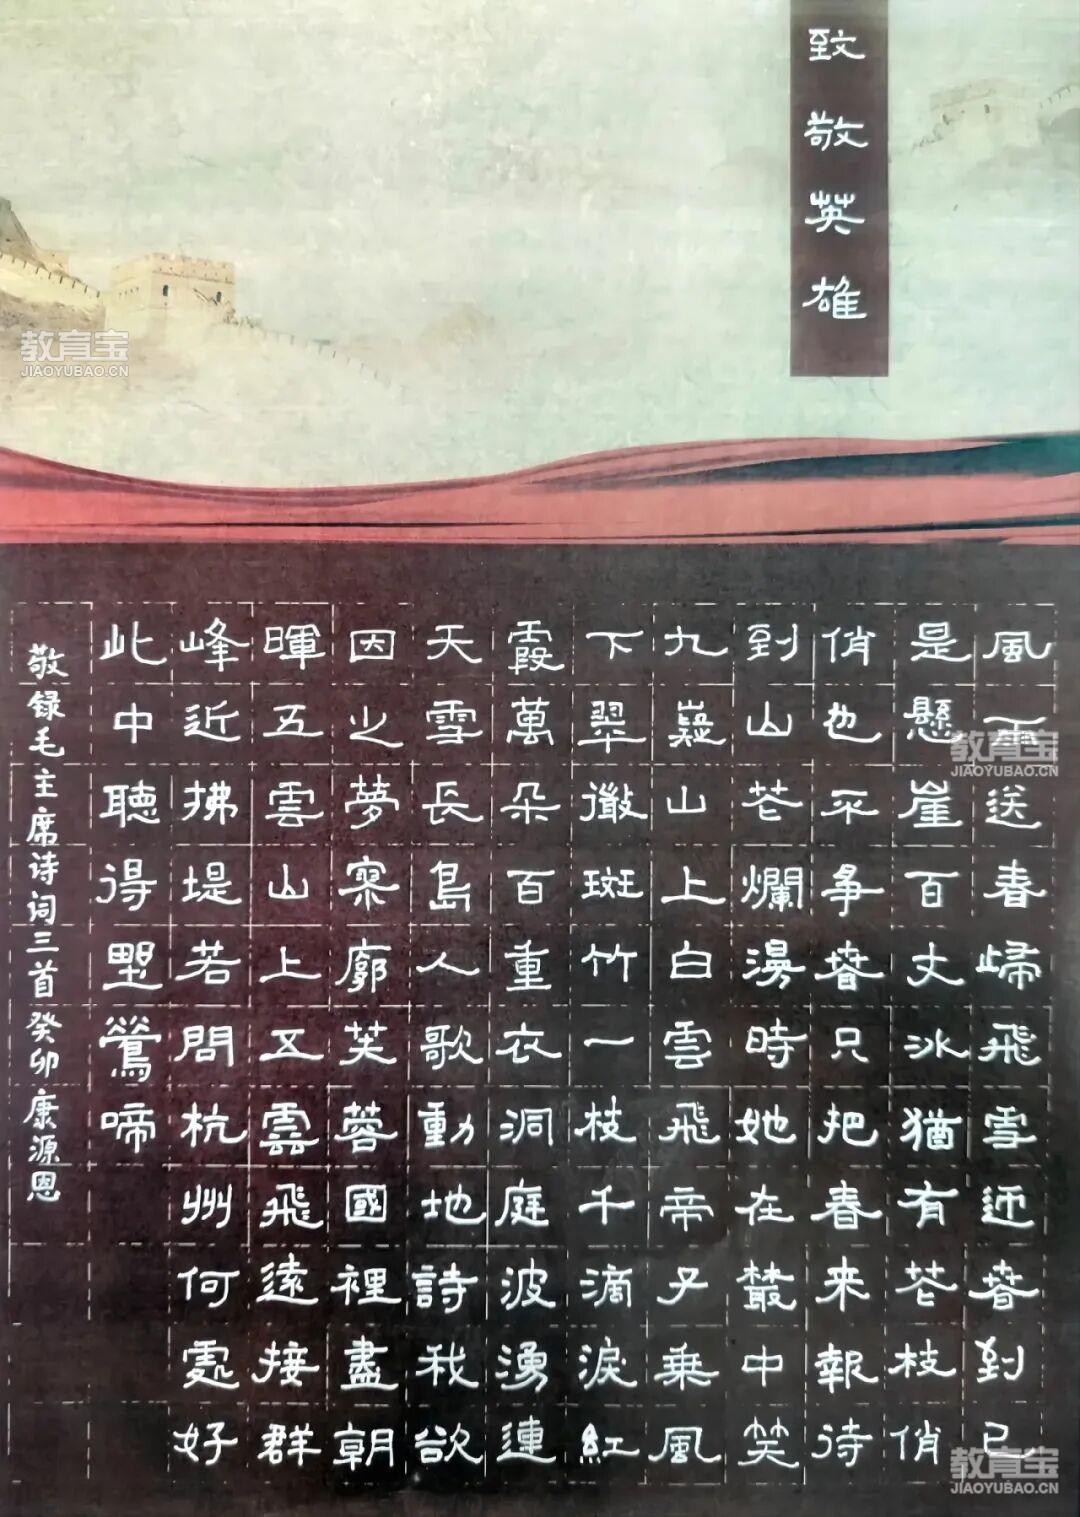 致敬英雄
風雨送春歸飛雪迎春到已
是懸崖百丈冰猶有花枝俏
俏也不爭春只把春来報待
到山花爛漫時她在叢中笑
九嶷山上白雲飛帝子乗風
下翠微斑竹一枝千滴淚紅
霞萬朵百重衣洞庭波湧連
天雪長島人歌動地詩我欲
因之夢寥廓芙蓉國裡盡朝
暉五雲山上五雲飛遠接群
峰近拂堤若問杭州何處好
此中聽得野鶯啼
敬録毛主席诗词三首癸卯康源恩
教育宝
JIAOYUBAO.CN
教育宝
JIAOYUBAO.CN
教育宝
JIAOYUBAO.CN